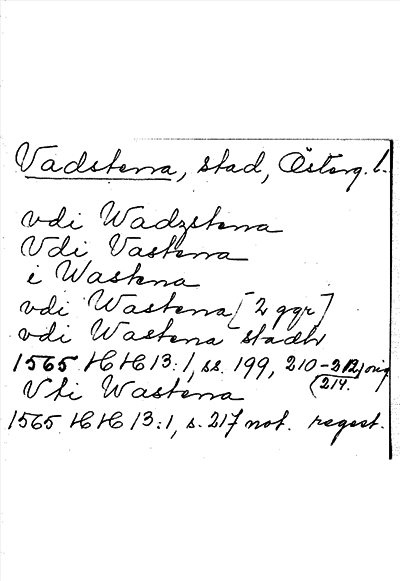 Vadstena, stad, Österg. l.
vdi Wadzstena
Vdi Vastena
i Wastena
vdi Wastena [2 ggr]
vdi Wastena stadh
1565 HH 13:1, ss. 199, 210-212, orig
(214.
Vti Wastena
1565 HH 13:1, s. 217 not. regest.